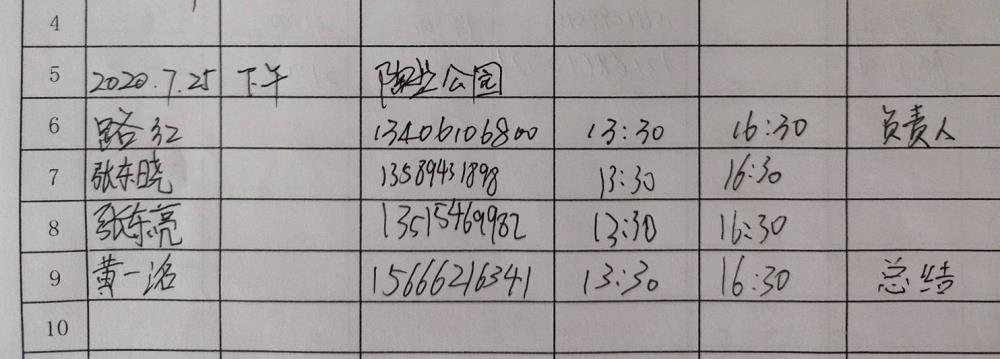 4
5 2020.7.25 下午 陶然公园
6 路红 13406106800 13:30 16:30 负责人
7 张东晓 13589431898 13:30 16:30
8 张东亮 13515469982 13:30 16:30
9 黄一洺 15666216341 13:30 16:30 总结
10